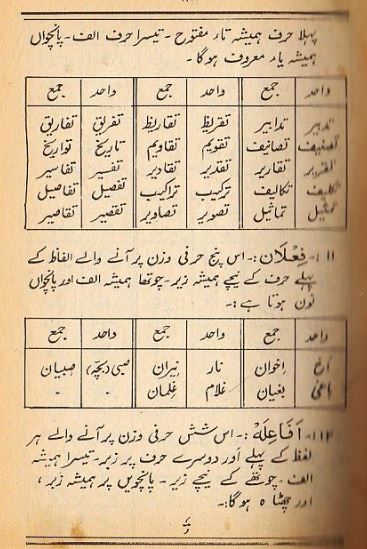 پہلا حرف ہمیشہ تاء مفتوح۔ تیسرا حرف الف۔ پانچواں
ہمیشہ یاء معروف ہوگا۔
واحد جمع واحد جمع واحد جمع
تدبیر تدابیر تقریظ تقاریظ تفریق تفاریق
تصنیف تصانیف تقویم تقاویم تاریخ تواریخ
تقریر تقاریر تقدیر تقادیر تفسیر تفاسیر
تکلیف تکالیف ترکیب تراکیب تفصیل تفاصیل
تمثیل تماثیل تصویر تصاویر تقصیر تقاصیر
۱۱۔ فِعْلَان:۔ اس پنج حرفی وزن پر آنے والے الفاظ کے
پہلے حرف کے نیچے ہمیشہ زیر۔ چوتھا ہمیشہ الف اور پانچواں
نون ہوتا ہے:۔
واحد جمع واحد جمع واحد جمع
اَخ اِخوان نار نِیران صبی (بچّہ) صبیان
باغی بغیان غلام غِلمان ۔ ۔
۱۲۔ اَفَاعِلَہ:۔ اس شش حرفی وزن پر آنے والے ہر
لفظ کے پہلے اور دوسرے حرف پر زبر۔ تیسرا ہمیشہ
الف۔ چوتھے کے نیچے زیر۔ پانچویں پر ہمیشہ زبر،
اور چھٹا ہ ہوگا:۔